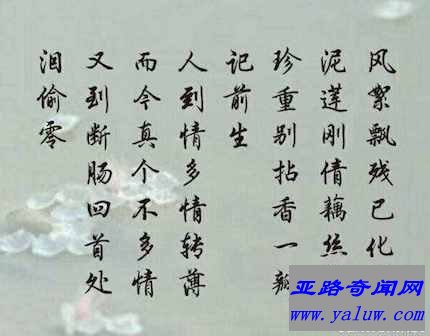 风絮飘残已化
泥莲刚倩藕丝
珍重别拈香一瓣
记前生
人到情多情转薄
而今真个不多情
又到断肠回首处
泪偷零
亚路奇闻网
www.yaluw.com